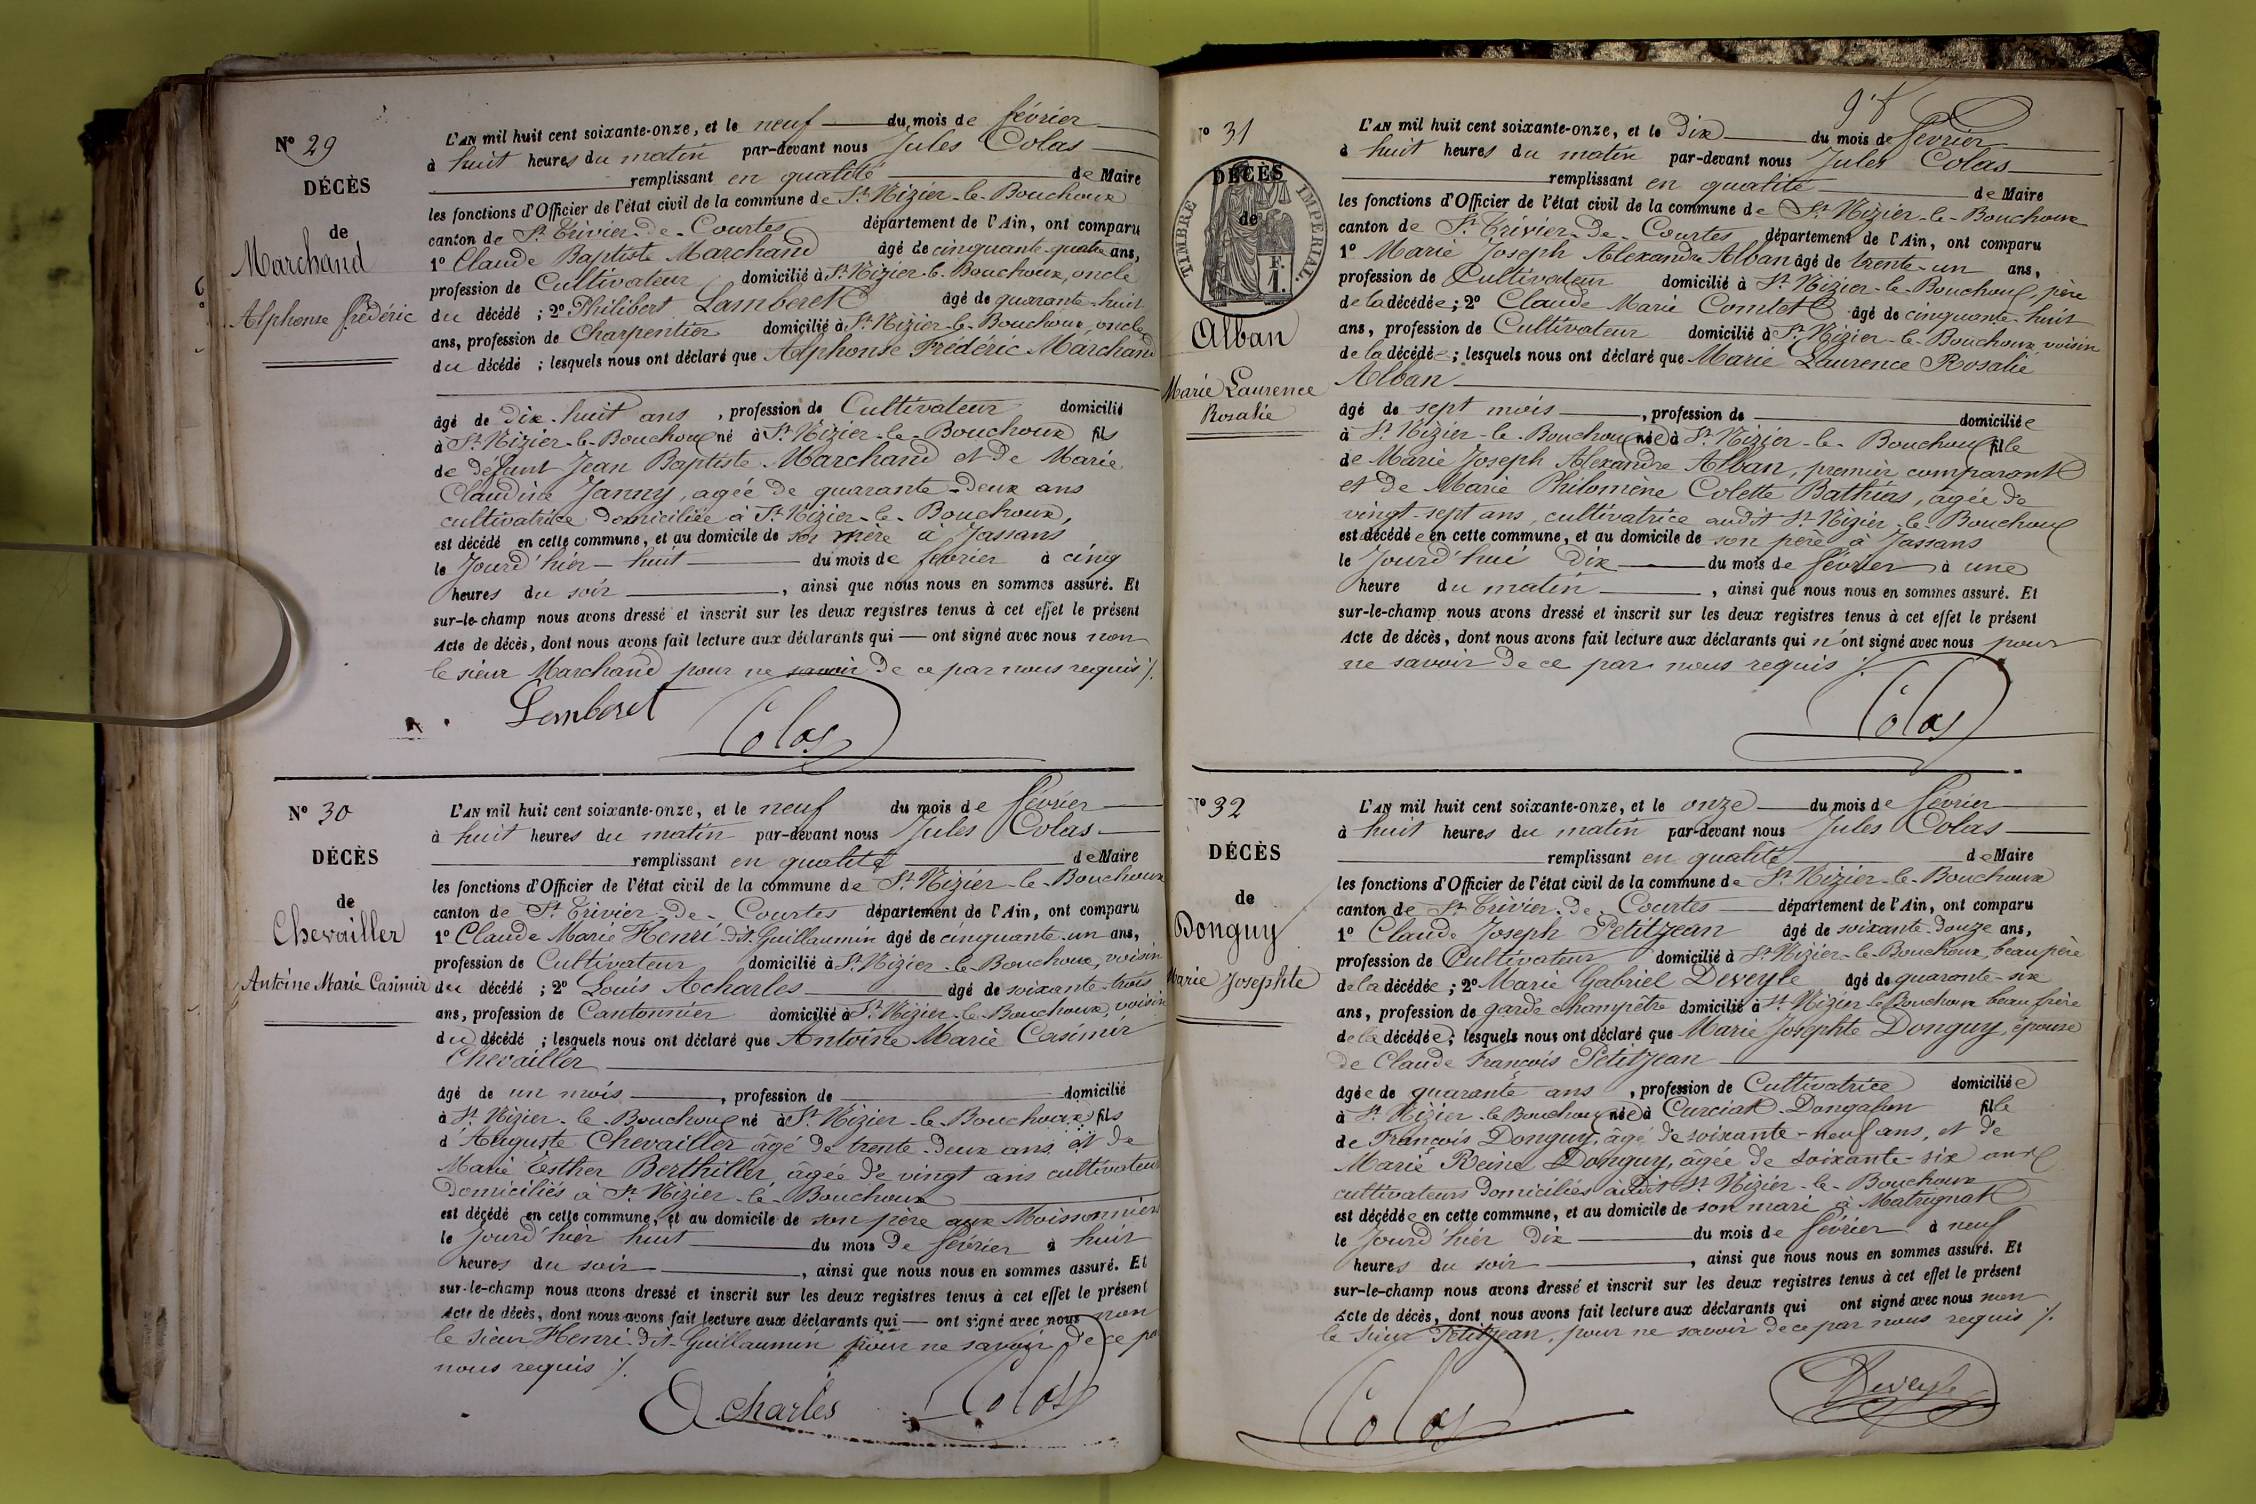 N° 29
DÉCÈS
de
Marchand
Alphonse Frédéric
L'AN mil huit cent soixante-onze, et le neuf du mois de février
à huit heures du matin par-devant nous Jules Colas
remplissant en qualité de Maire
les fonctions d'Officier de l'état civil de la commune de St Nizier-le-Bouchoux
canton de St Trivier-de-Courtes département de l'Ain, ont comparu
1° Claude Baptiste Marchand âgé de cinquante-quatre ans,
profession de Cultivateur domicilié à St Nizier-le-Bouchoux, oncle
du décédé ; 2° Philibert Lamberet âgé de quarante-huit
ans, profession de Charpentier domicilié à St Nizier-le-Bouchoux, oncle
du décédé ; lesquels nous ont déclaré que Alphonse Frédéric Marchand
âgé de dix-huit ans , profession de Cultivateur domicilié
à St Nizier-le-Bouchoux né à St Nizier-le-Bouchoux fils
de défunt Jean Baptiste Marchand et de Marie
Claudine Janny, agée de quarante-deux ans
cultivatrice domiciliée à St Nizier-le-Bouchoux,
est décédé en cette commune, et au domicile de sa mère à Jassans
le Jourd'hier huit du mois de février à cinq
heures du soir , ainsi que nous nous en sommes assuré. Et
sur-le-champ nous avons dressé et inscrit sur les deux registres tenus à cet effet le présent
Acte de décès, dont nous avons fait lecture aux déclarants qui — ont signé avec nous non
le sieur Marchand pour ne savoir de ce par nous requis ./.
Lamberet Colas
N° 30
DÉCÈS
de
Chevailler
Antoine Marie Casimir
L'AN mil huit cent soixante-onze, et le neuf du mois de février
à huit heures du matin par-devant nous Jules Colas
remplissant en qualité de Maire
les fonctions d'Officier de l'état civil de la commune de St Nizier-le-Bouchoux
canton de St Trivier-de-Courtes département de l'Ain, ont comparu
1° Claude Marie Henri-dit-Guillaumin âgé de cinquante-un ans,
profession de Cultivateur domicilié à St Nizier-le-Bouchoux, voisin
du décédé ; 2° Louis Acharles âgé de soixante-trois
ans, profession de Cantonnier domicilié à St Nizier-le-Bouchoux, voisin
du décédé ; lesquels nous ont déclaré que Antoine Marie Casimir
Chevailler
âgé de un mois , profession de domicilié
à St Nizier-le-Bouchoux né à St Nizier-le-Bouchoux fils
d'Auguste Chevailler âgé de trente-deux ans et de
Marie Esther Berthiller, âgée de vingt ans cultivateurs
domiciliés à St Nizier-le-Bouchoux
est décédé en cette commune, et au domicile de son père aux Moissonniers
le Jourd'hier huit du mois de février à huit
heures du soir , ainsi que nous nous en sommes assuré. Et
sur-le-champ nous avons dressé et inscrit sur les deux registres tenus à cet effet le présent
Acte de décès, dont nous avons fait lecture aux déclarants qui — ont signé avec nous non
le sieur Henri-dit-Guillaumin pour ne savoir de ce par
nous requis ./.
Acharles Colas
N° 31
DÉCÈS
de
TIMBRE IMPÉRIAL
F.
1.
Alban
Marie Laurence
Rosalie
L'AN mil huit cent soixante-onze, et le dix du mois de février
à huit heures du matin par-devant nous Jules Colas
remplissant en qualité de Maire
les fonctions d'Officier de l'état civil de la commune de St Nizier-le-Bouchoux
canton de St Trivier-de-Courtes département de l'Ain, ont comparu
1° Marie Joseph Alexandre Alban âgé de trente-un ans,
profession de Cultivateur domicilié à St Nizier-le-Bouchoux, père
de la décédée ; 2° Claude Marie Comtet âgé de cinquante-huit
ans, profession de Cultivateur domicilié à St Nizier-le-Bouchoux voisin
de la décédée ; lesquels nous ont déclaré que Marie Laurence Rosalie
Alban
âgé de sept mois , profession de domiciliée
à St Nizier-le-Bouchoux née à St Nizier-le-Bouchoux fille
de Marie Joseph Alexandre Alban, premier comparant
et de Marie Philomène Colette Bathias, agée de
vingt-sept ans, cultivatrice audit St Nizier-le-Bouchoux
est décédée en cette commune, et au domicile de son père à Jassans
le Jourd'hui dix du mois de février à une
heure du matin , ainsi que nous nous en sommes assuré. Et
sur-le-champ nous avons dressé et inscrit sur les deux registres tenus à cet effet le présent
Acte de décès, dont nous avons fait lecture aux déclarants qui n'ont signé avec nous pour
ne savoir de ce par nous requis ./.
Colas
N° 32
DÉCÈS
de
Donguy
Marie Josephte
L'AN mil huit cent soixante-onze, et le onze du mois de février
à huit heures du matin par-devant nous Jules Colas
remplissant en qualité de Maire
les fonctions d'Officier de l'état civil de la commune de St Nizier-le-Bouchoux
canton de St Trivier-de-Courtes département de l'Ain, ont comparu
1° Claude Joseph Petitjean âgé de soixante-douze ans,
profession de Cultivateur domicilié à St Nizier-le-Bouchoux, beau père
de la décédée ; 2° Marie Gabriel Deveyle âgé de quarante-six
ans, profession de garde champêtre domicilié à St Nizier le Bouchoux beau frère
de la décédée ; lesquels nous ont déclaré que Marie Josephte Donguy, épouse
de Claude François Petitjean
âgée de quarante ans , profession de Cultivatrice domiciliée
à St Nizier-le-Bouchoux née à Curciat-Dongalon fille
de François Donguy, âgé de soixante-neuf ans, et de
Marie Reine Donguy, âgée de soixante-six ans
cultivateurs domiciliés audit St Nizier-le-Bouchoux
est décédée en cette commune, et au domicile de son mari à Matrignat
le Jourd'hier dix du mois de février à neuf
heures du soir , ainsi que nous nous en sommes assuré. Et
sur-le-champ nous avons dressé et inscrit sur les deux registres tenus à cet effet le présent
Acte de décès, dont nous avons fait lecture aux déclarants qui ont signé avec nous non
le sieur Petitjean, pour ne savoir de ce par nous requis ./.
Colas Deveyle